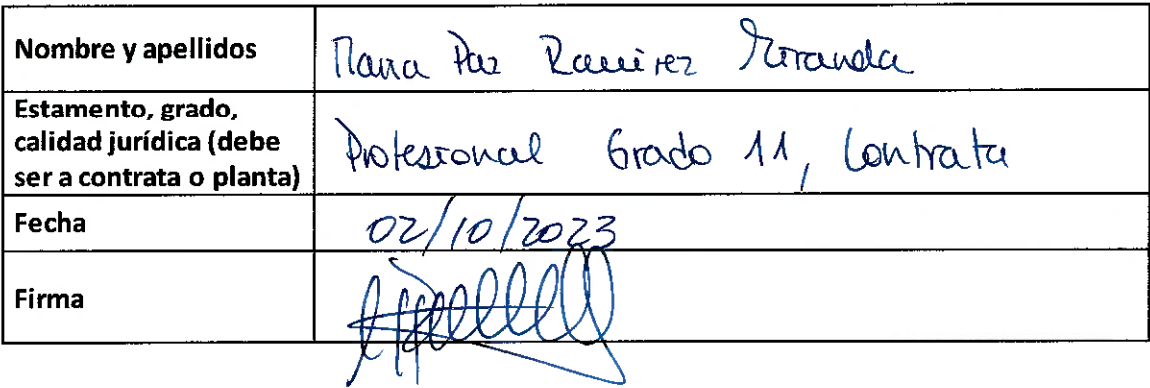 Nombre y apellidos
Maria Paz Ramirez Miranda
Estamento, grado,
calidad jurídica (debe
ser a contrata o planta)
Profesional Grado 11, Contrata
Fecha
02/10/2023
Firma